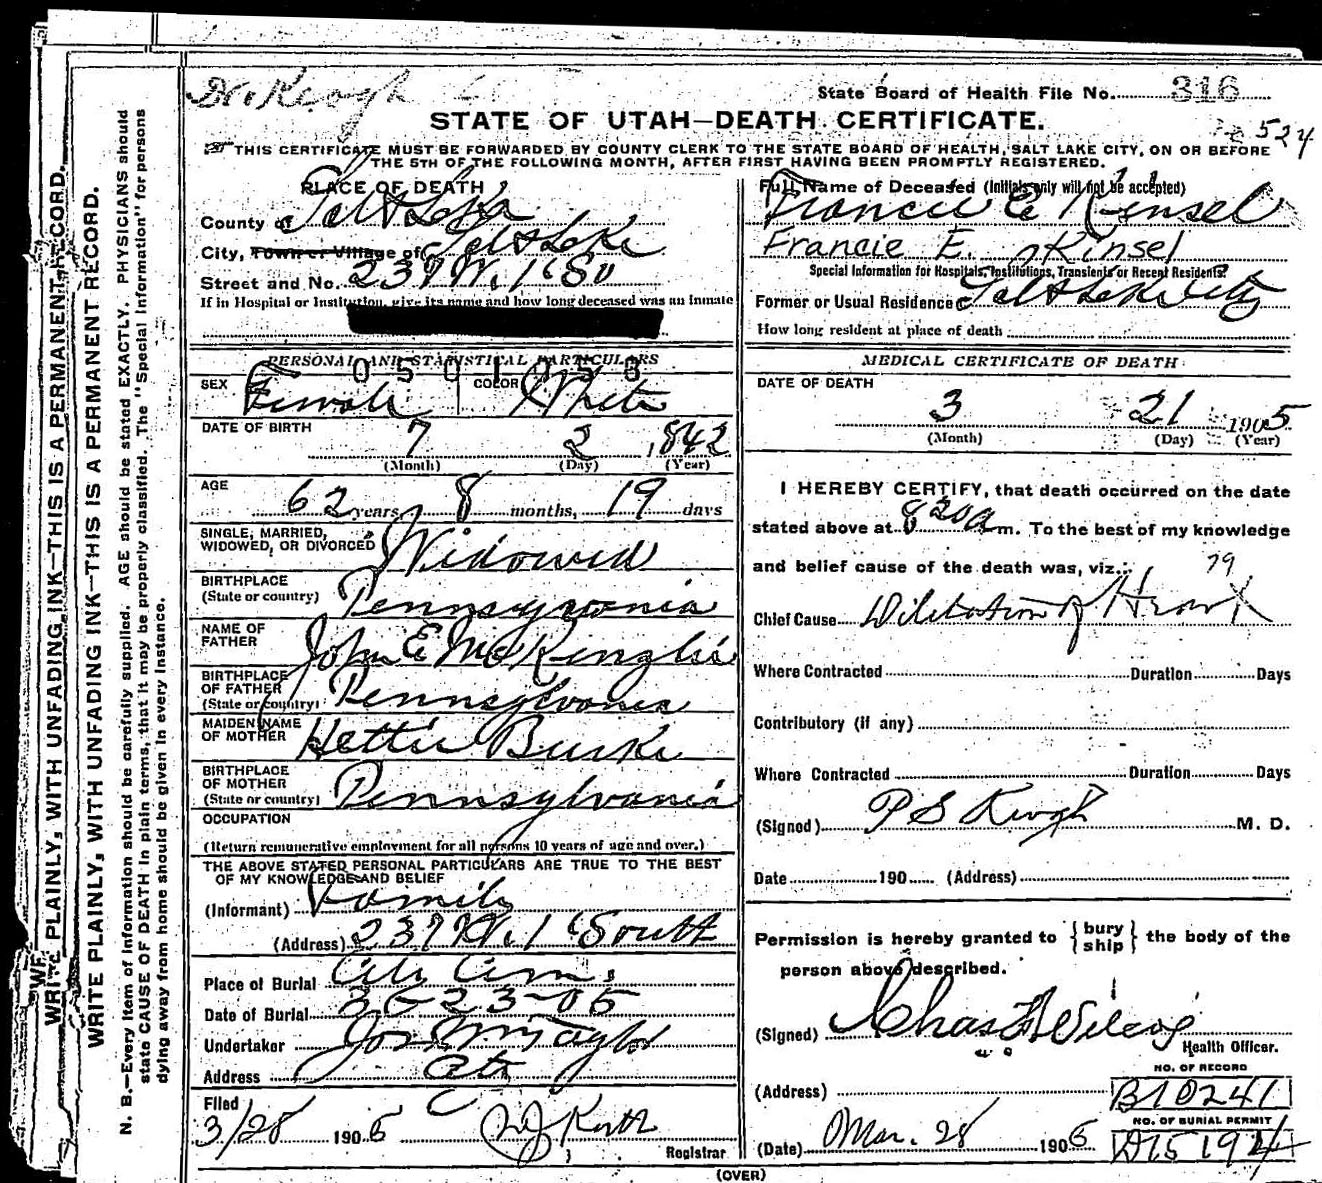 Dr. Keogh
State Board of Health File No. 316
STATE OF UTAH—DEATH CERTIFICATE.
524
THIS CERTIFICATE MUST BE FORWARDED BY COUNTY CLERK TO THE STATE BOARD OF HEALTH, SALT LAKE CITY, ON OR BEFORE
THE 5TH OF THE FOLLOWING MONTH, AFTER FIRST HAVING BEEN PROMPTLY REGISTERED.
PLACE OF DEATH
County of Salt Lake
City, Town or Village of Salt Lake
Street and No. 237 W. 1st So
If in Hospital or Institution, give its name and how long deceased was an Inmate
Full Name of Deceased (Initials only will not be accepted)
Francie E Kinsel
Francie E. Kinsel
Special Information for Hospitals, Institutions, Transients or Recent Residents.
Former or Usual Residence Salt Lake City
How long resident at place of death
PERSONAL AND STATISTICAL PARTICULARS
0501056
SEX Female COLOR White
DATE OF BIRTH
7 2 1842
(Month) (Day) (Year)
AGE
62 years 8 months, 19 days
SINGLE, MARRIED,
WIDOWED, OR DIVORCED Widowed
BIRTHPLACE
(State or country) Pennsylvania
NAME OF
FATHER John E
BIRTHPLACE
OF FATHER
(State or country) Pennsylvania
MAIDEN NAME
OF MOTHER Hettie Burke
BIRTHPLACE
OF MOTHER
(State or country) Pennsylvania
OCCUPATION
(Return remunerative employment for all persons 10 years of age and over.)
THE ABOVE STATED PERSONAL PARTICULARS ARE TRUE TO THE BEST
OF MY KNOWLEDGE AND BELIEF
(Informant) Family
(Address) 237 W. 1st South
Place of Burial City Cem.
Date of Burial 3-23-05
Undertaker Jos Wm Taylor
Address City
Filed
3/28 1905
Registrar
MEDICAL CERTIFICATE OF DEATH
DATE OF DEATH
3 21 1905
(Month) (Day) (Year)
I HEREBY CERTIFY, that death occurred on the date
stated above at 8 20 a m. To the best of my knowledge
and belief cause of the death was, viz.:
79
Chief Cause Dilitation of Heart
Where Contracted Duration Days
Contributory (if any)
Where Contracted Duration Days
(Signed) P S Keogh M. D.
Date 190 (Address)
Permission is hereby granted to {bury
ship} the body of the
person above described.
(Signed) Chas
Health Officer.
NO. OF RECORD
(Address) B10241
NO. OF BURIAL PERMIT
(Date) Mar. 28 1905 A15194
(OVER)
WRITE PLAINLY, WITH UNFADING INK—THIS IS A PERMANENT RECORD.
WRITE PLAINLY, WITH UNFADING INK—THIS IS A PERMANENT RECORD.
N. B.—Every item of information should be carefully supplied. AGE should be stated EXACTLY. PHYSICIANS should
state CAUSE OF DEATH in plain terms, that it may be properly classified. The "Special Information" for persons
dying away from home should be given in every instance.